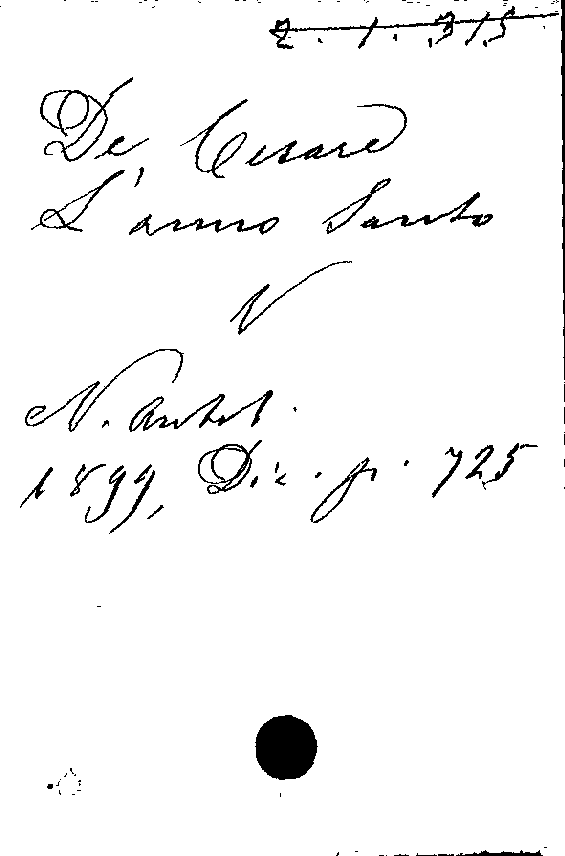 2. 1. 315
De Cesare
L'anno Santo
V
N. Antol.
1899, Dic. p. 725